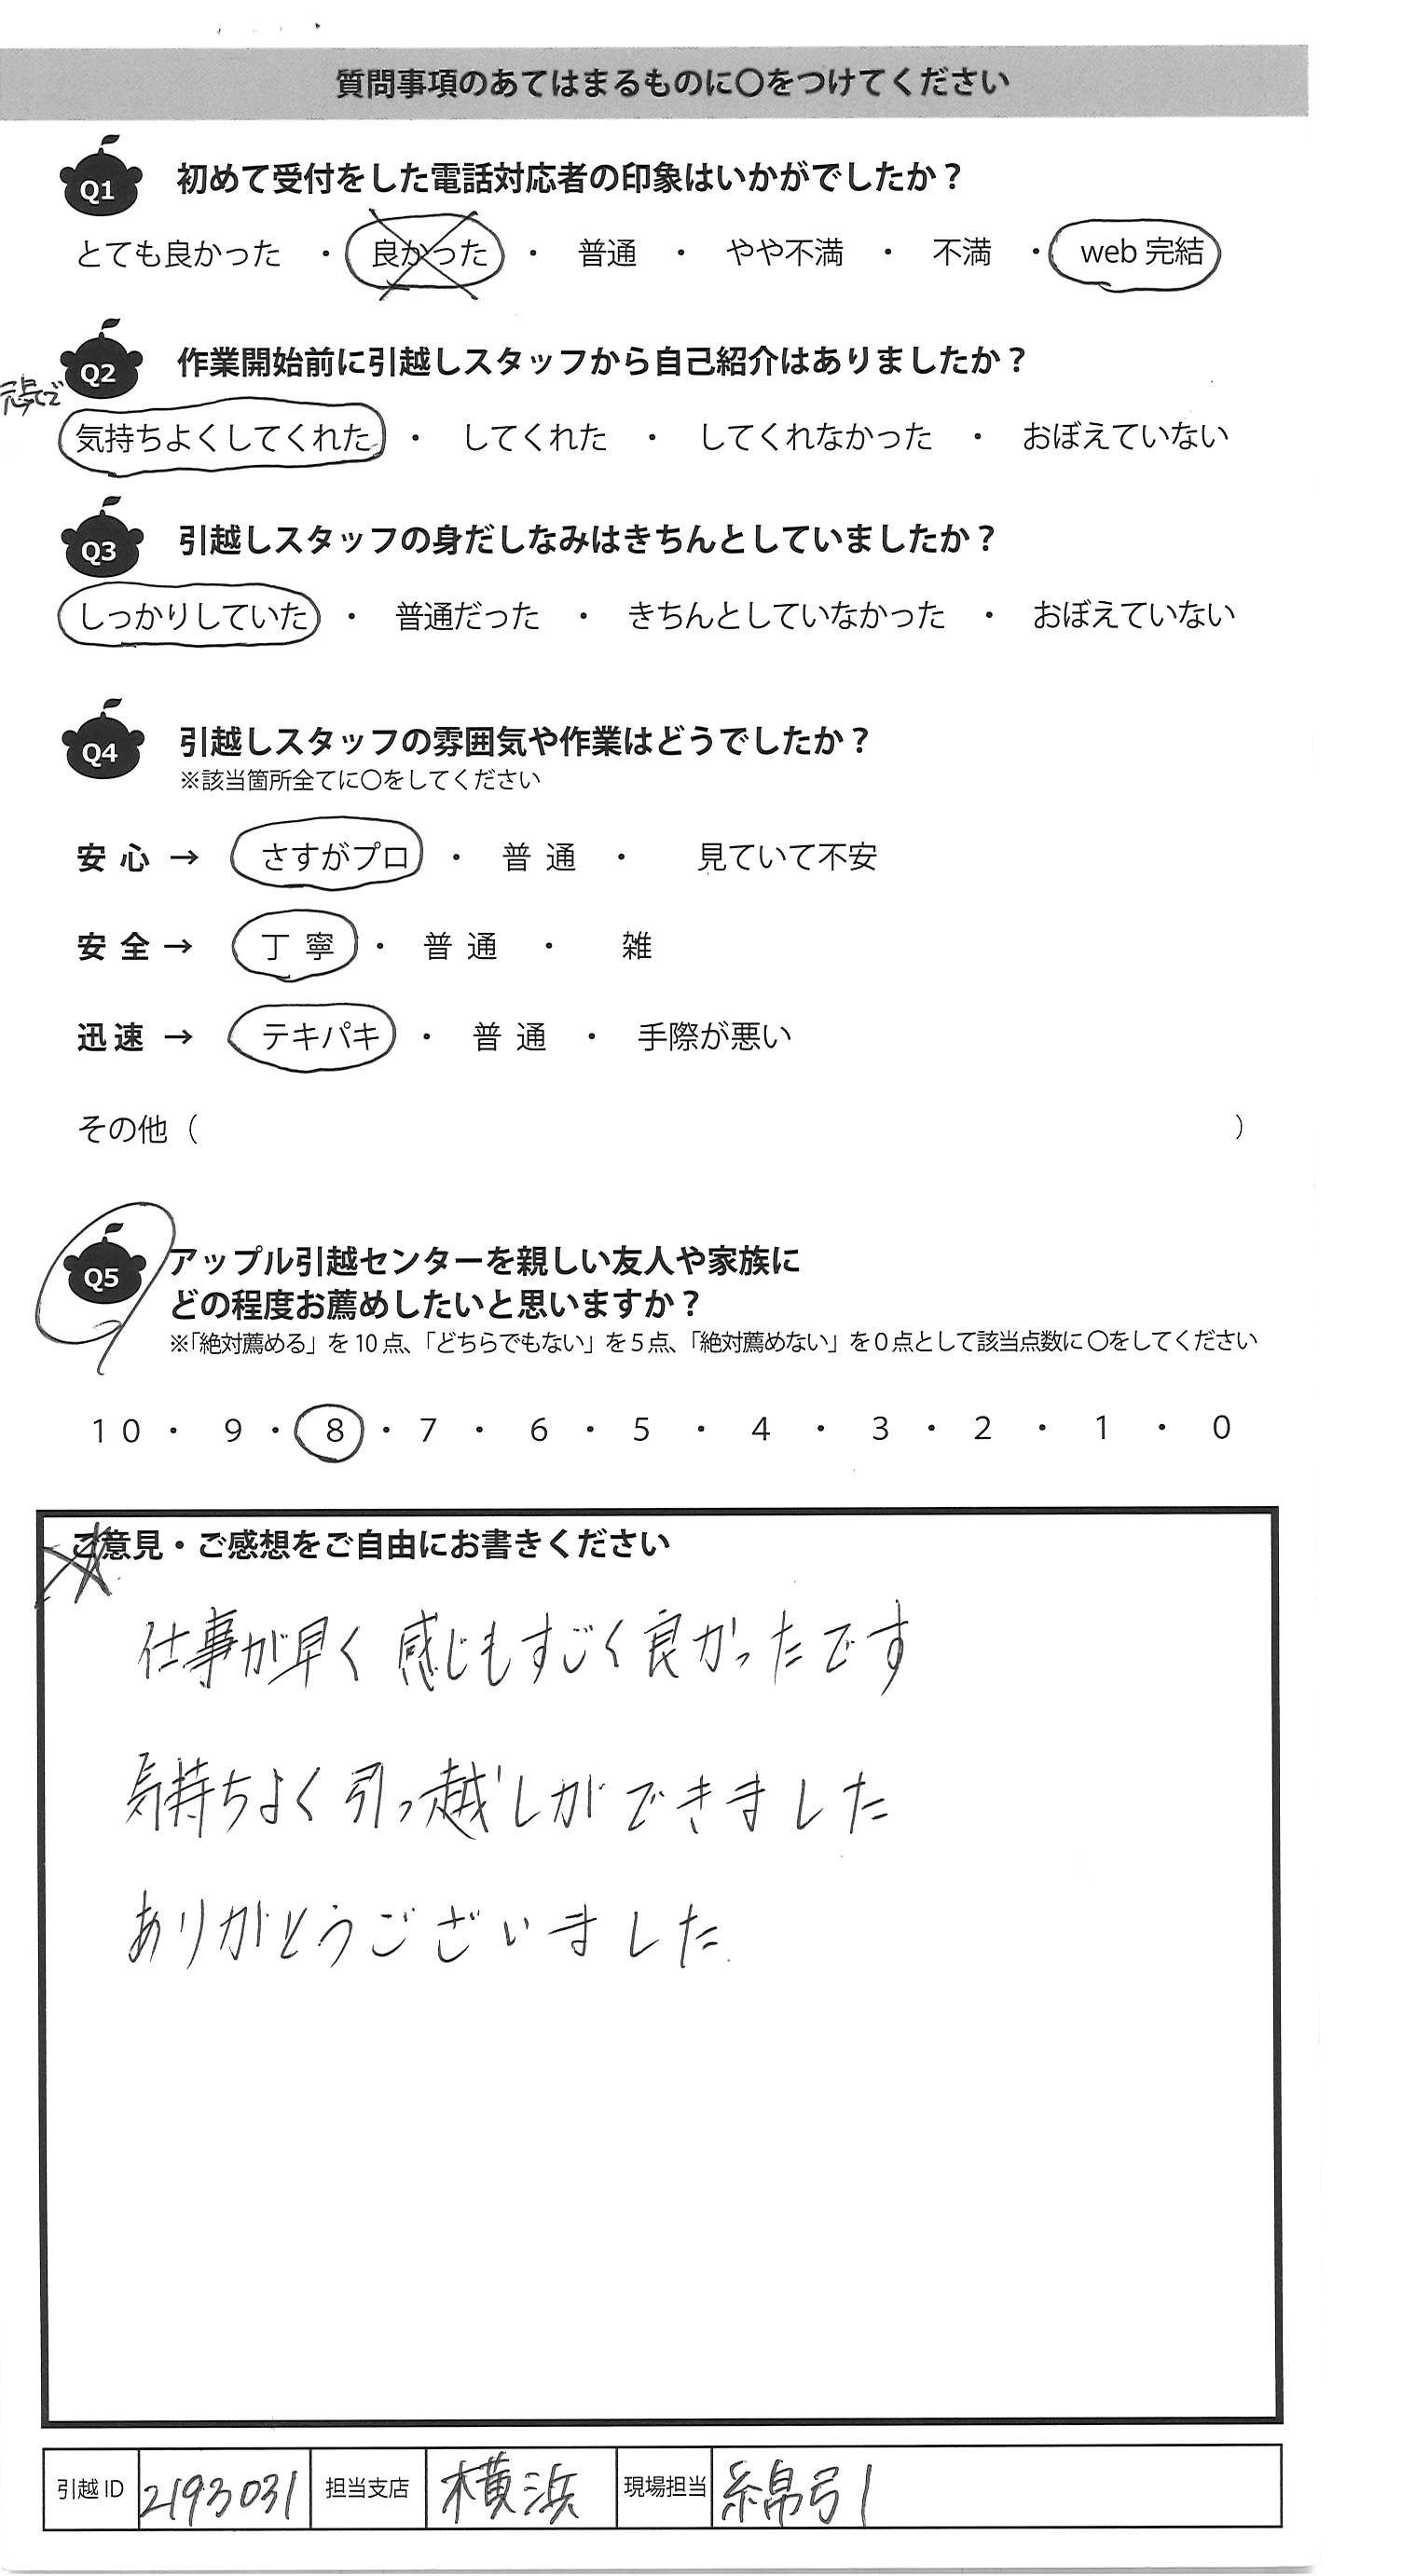 質問事項のあてはまるものに〇をつけてください
Q1 初めて受付をした電話対応者の印象はいかがでしたか？
とても良かった ・ 良かった ・ 普通 ・ やや不満 ・ 不満 ・ web 完結
Q2 作業開始前に引越しスタッフから自己紹介はありましたか？
気持ちよくしてくれた ・ してくれた ・ してくれなかった ・ おぼえていない
Q3 引越しスタッフの身だしなみはきちんとしていましたか？
しっかりしていた ・ 普通だった ・ きちんとしていなかった ・ おぼえていない
Q4 引越しスタッフの雰囲気や作業はどうでしたか？
※該当箇所全てに〇をしてください
安心 → さすがプロ ・ 普通 ・ 見ていて不安
安全 → 丁寧 ・ 普通 ・ 雑
迅速 → テキパキ ・ 普通 ・ 手際が悪い
その他（ ）
Q5 アップル引越センターを親しい友人や家族に
どの程度お薦めしたいと思いますか？
※「絶対薦める」を 10 点、「どちらでもない」を 5 点、「絶対薦めない」を 0 点として該当点数に 〇をしてください
10 ・ 9 ・ 8 ・ 7 ・ 6 ・ 5 ・ 4 ・ 3 ・ 2 ・ 1 ・ 0
ご意見・ご感想をご自由にお書きください
仕事が早く 感じもすごく良かったです
気持ちよく引っ越しができました
ありがとうございました
引越 ID 2193031 担当支店 横浜 現場担当 綿引